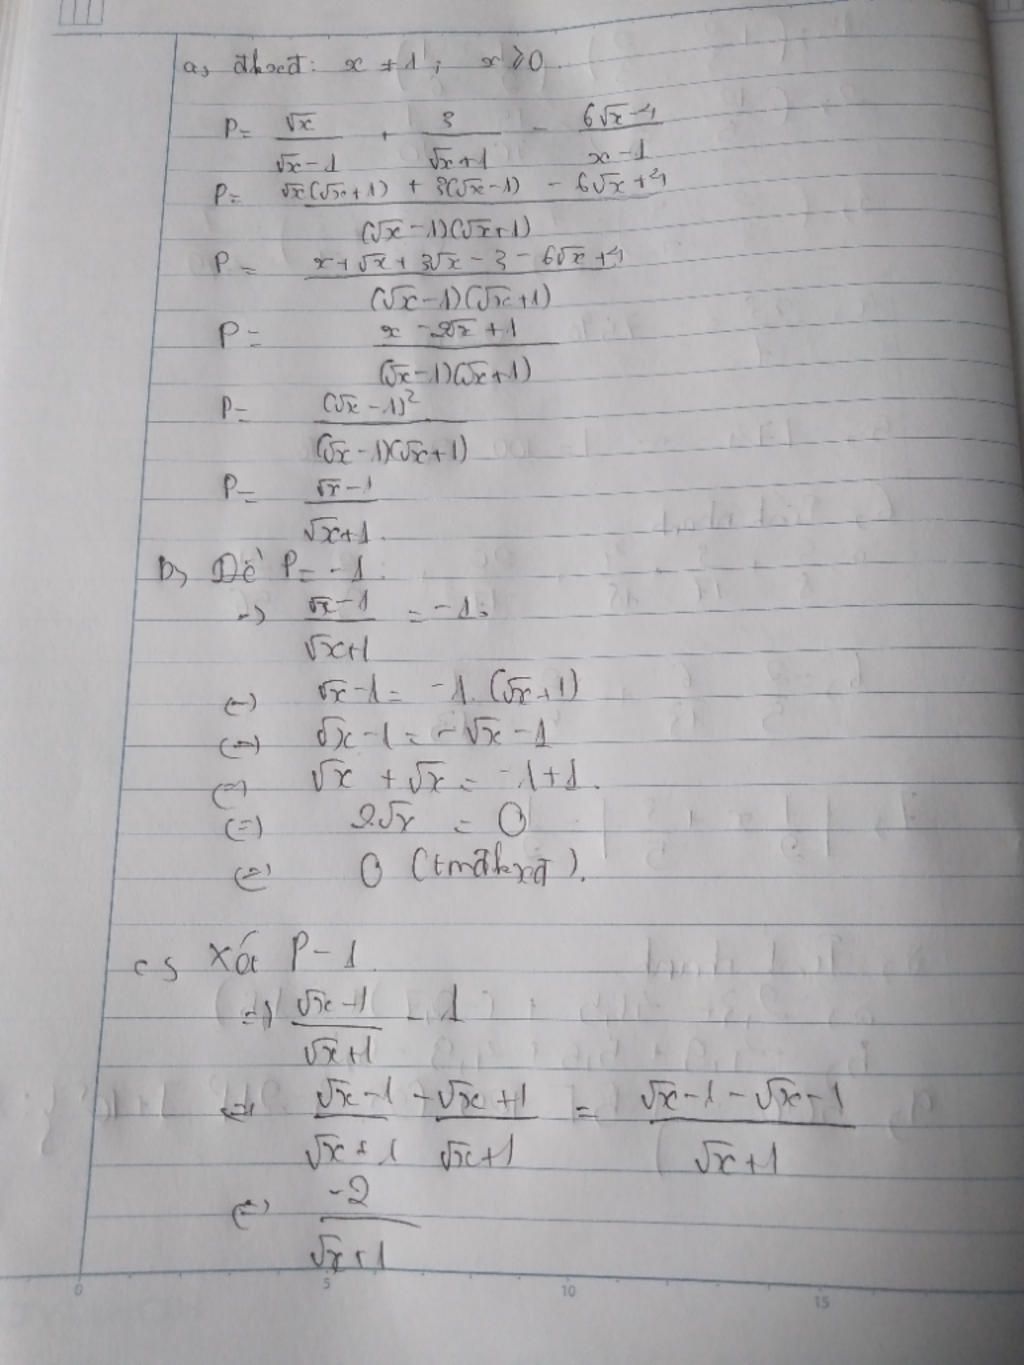 a, đkxđ: x ≠ 1 ; x ≥ 0.
P = √x/(√x - 1) + 3/(√x + 1) - (6√x - 4)/(x - 1)
P = (√x(√x + 1) + 3(√x - 1) - 6√x + 4)/((√x - 1)(√x + 1))
P = (x + √x + 3√x - 3 - 6√x + 4)/((√x - 1)(√x + 1))
P = (x - 2√x + 1)/((√x - 1)(√x + 1))
P = (√x - 1)²/((√x - 1)(√x + 1))
P = (√x - 1)/(√x + 1).
b, Để P = -1.
=> (√x - 1)/(√x + 1) = -1.
(=) √x - 1 = -1.(√x + 1)
(=) √x - 1 = -√x - 1
(=) √x + √x = -1 + 1.
(=) 2√x = 0
(=) 0 (tmđkxđ).
c, Xét P - 1.
=> (√x - 1)/(√x + 1) - 1
(=) (√x - 1)/(√x + 1) - (√x + 1)/(√x + 1) = (√x - 1 - √x - 1)/(√x + 1)
(=) -2/(√x + 1)
0 5 10 15